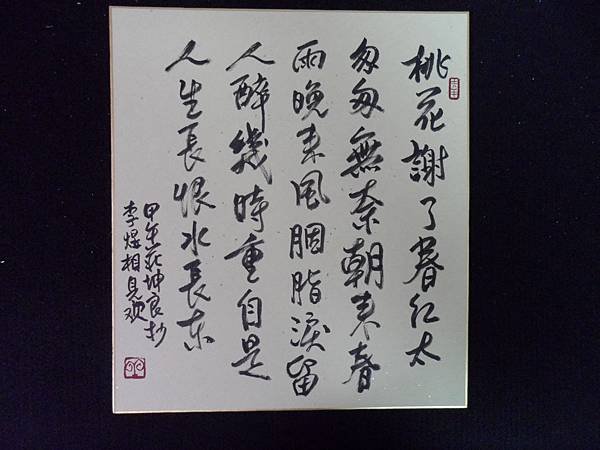 桃花謝了春红太
匆匆無奈朝来春
雨晚来风胭脂淚留
人醉幾時重自是
人生長恨水長东
甲午坤良抄
李煜相見欢